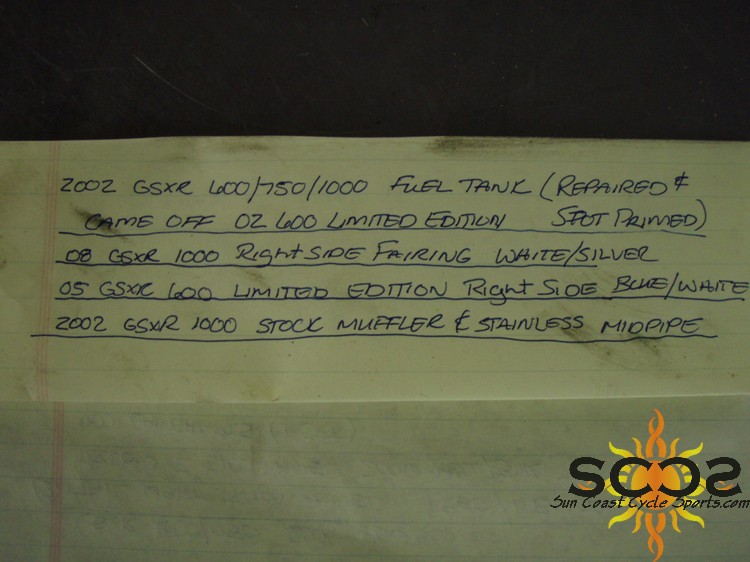 2002 GSXR 600/750/1000 FUEL TANK (REPAIRED &
CAME OFF 02 600 LIMITED EDITION SPOT PRIMED)
08 GSXR 1000 RIGHT SIDE FAIRING WHITE/SILVER
05 GSXR 600 LIMITED EDITION RIGHT SIDE BLUE/WHITE
2002 GSXR 1000 STOCK MUFFLER & STAINLESS MIDPIPE
SCCS
Sun Coast Cycle Sports.com